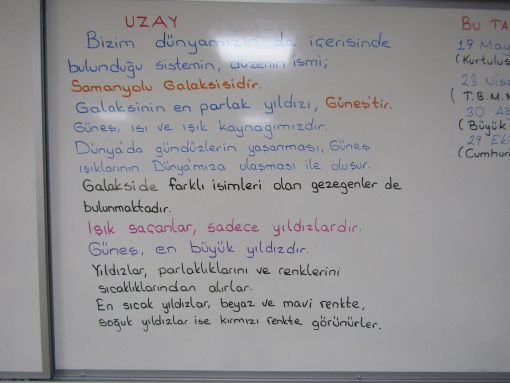 UZAY
Bizim dünyamızın da içerisinde
bulunduğu sistemin, düzenin ismi;
Samanyolu Galaksisidir.
Galaksinin en parlak yıldızı, Güneş'tir.
Güneş, ısı ve ışık kaynağımızdır.
Dünya'da gündüzlerin yaşanması, Güneş
ışıklarının Dünya'mıza ulaşması ile oluşur.
Galakside farklı isimleri olan gezegenler de
bulunmaktadır.
Işık saçanlar, sadece yıldızlardır.
Güneş, en büyük yıldızdır.
Yıldızlar, parlaklıklarını ve renklerini
sıcaklıklarından alırlar.
En sıcak yıldızlar, beyaz ve mavi renkte,
soğuk yıldızlar ise kırmızı renkte görünürler.
BU TA
19 May
(Kurtuluş
23 Nisa
(T.B.M.M
30 Ağ
(Büyük
29 Eki
(Cumhuri